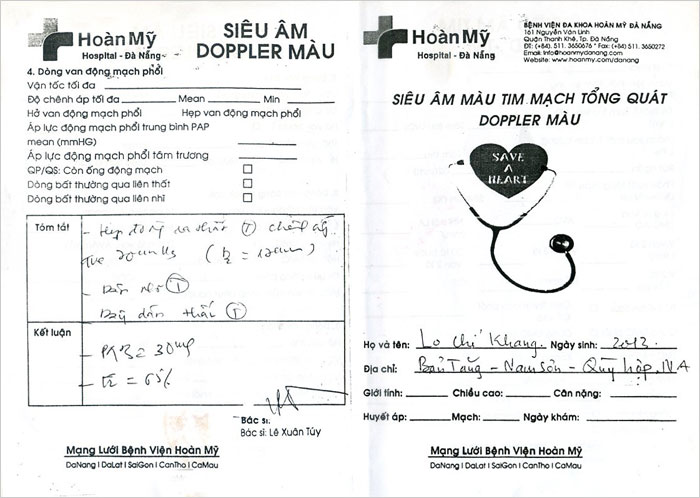 Hoàn Mỹ
Hospital - Đà Nẵng
SIÊU ÂM
DOPPLER MÀU
4. Dòng van động mạch phổi
Vận tốc tối đa
Độ chênh áp tối đa Mean Min
Hở van động mạch phổi Hẹp van động mạch phổi
Áp lực động mạch phổi trung bình PAP
mean (mmHG)
Áp lực động mạch phổi tâm trương
QP/QS: Còn ống động mạch
Dòng bất thường qua liên thất
Dòng bất thường qua liên nhĩ
Tóm tắt
20mmHg
Kết luận
= 30
= 65%
Bác sĩ:
Bác sĩ: Lê Xuân Túy
Mạng Lưới Bệnh Viện Hoàn Mỹ
DaNang I DaLat I SaiGon I CanTho I CaMau
Hoàn Mỹ
Hospital - Đà Nẵng
BỆNH VIỆN ĐA KHOA HOÀN MỸ ĐÀ NẴNG
161 Nguyễn Văn Linh
Quận Thanh Khê, Tp. Đà Nẵng
ĐT: (+84). 511. 3650676 * Fax: (+84). 511. 3650272
Website: www.hoanmy.com/danang
SIÊU ÂM MÀU TIM MẠCH TỔNG QUÁT
DOPPLER MÀU
SAVE
A
HEART
Họ và tên: Lo Chí Khang. Ngày sinh: 2013.
Địa chỉ: Bản Tăng - Nam Sơn - Quỳ hợp. NA
Giới tính: Chiều cao: Cân nặng:
Huyết áp: Mạch: Ngày khám:
Mạng Lưới Bệnh Viện Hoàn Mỹ
DaNang I DaLat I SaiGon I CanTho I CaMau